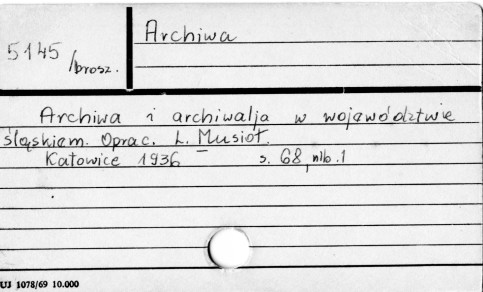 Archiwa
5145/brosz.
Archiwa i archiwalja w województwie
śląskiem. Oprac. L. Musioł.
Katowice 1936 s. 68, nlb. 1
UJ 1078/69 10.000